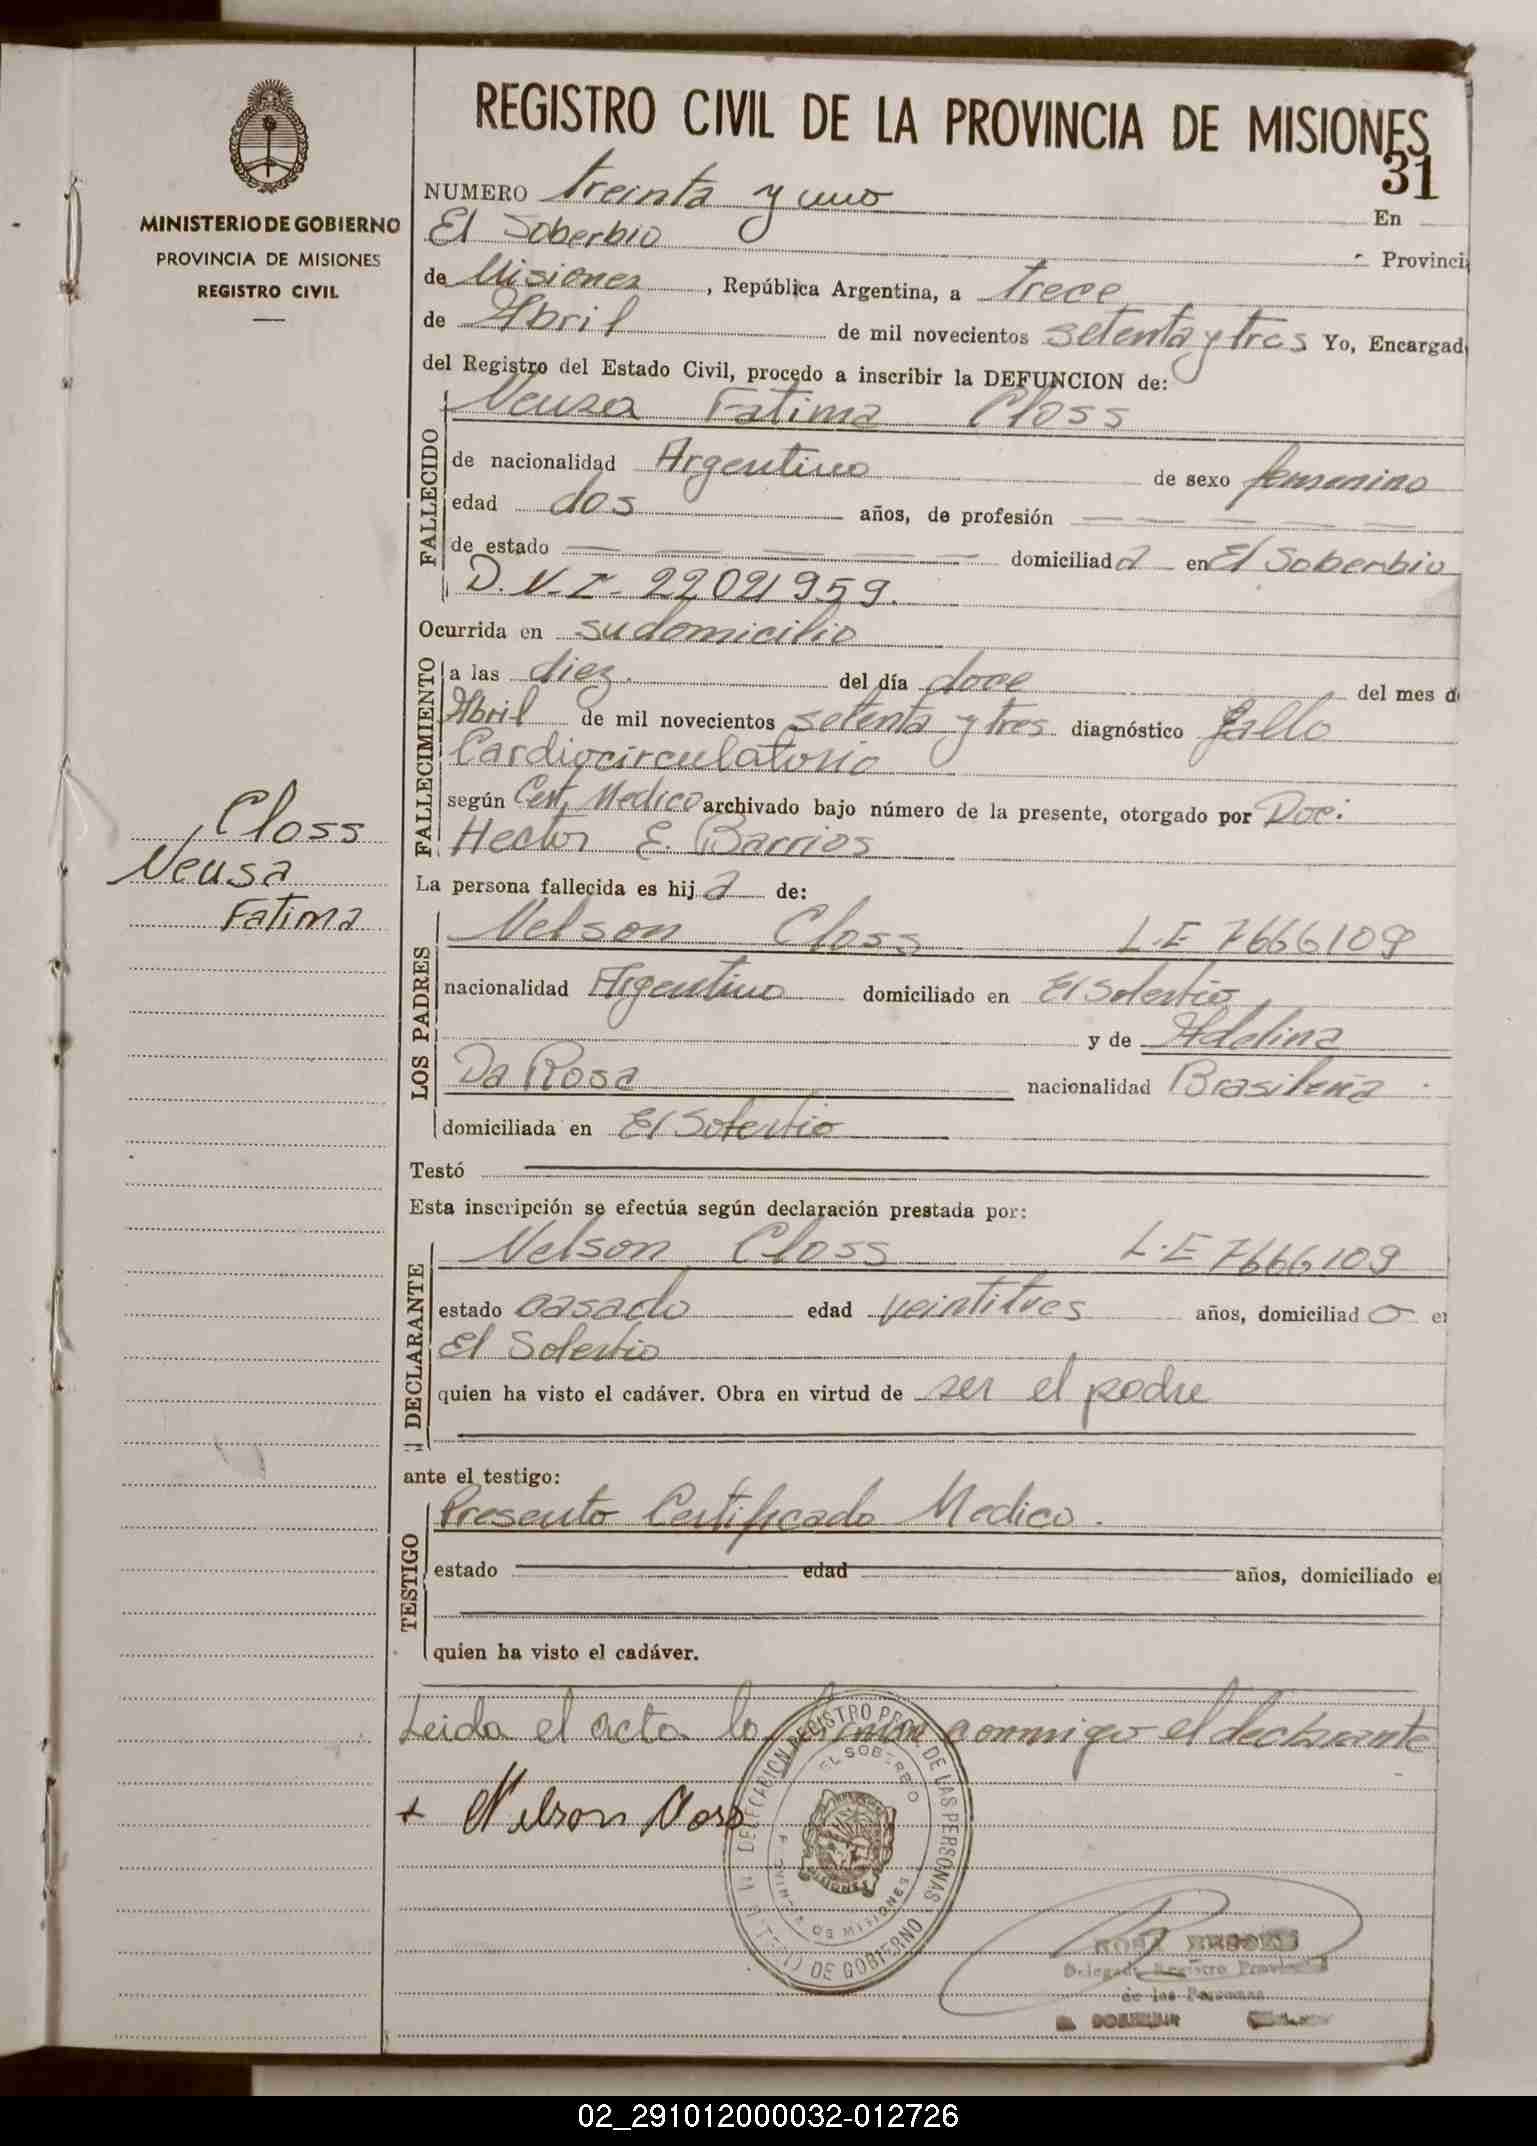 REGISTRO CIVIL DE LA PROVINCIA DE MISIONES
31
MINISTERIO DE GOBIERNO
PROVINCIA DE MISIONES
REGISTRO CIVIL
NUMERO treinta y uno En
El Soberbio Provinci
de Misiones, República Argentina, a trece
de Abril de mil novecientos setenta y tres Yo, Encargad
del Registro del Estado Civil, procedo a inscribir la DEFUNCION de:
FALLECIDO
Neusa Fatima Closs
de nacionalidad Argentino de sexo femenino
edad dos años, de profesión — — — — —
de estado — — — — — domiciliad a en El Soberbio
D.N.I. 22021959.
Ocurrida en su domicilio
FALLECIMIENTO
a las diez. del día doce del mes d
Abril de mil novecientos setenta y tres diagnóstico fallo
Cardiocirculatorio
según Cert. Medico archivado bajo número de la presente, otorgado por Doc:
Hector E. Barrios
Closs
Neusa
Fatima
La persona fallecida es hij a de:
LOS PADRES
Nelson Closs L.E 7666109
nacionalidad Argentino domiciliado en El Soberbio
y de Adelina
Da Rosa nacionalidad Brasileña
domiciliada en El Soberbio
Testó
Esta inscripción se efectúa según declaración prestada por:
DECLARANTE
Nelson Closs L.E 7666109
estado casado edad veintitres años, domiciliad o e
El Soberbio
quien ha visto el cadáver. Obra en virtud de ser el padre
ante el testigo:
TESTIGO
Presento Certificado Medico.
estado edad años, domiciliado e
quien ha visto el cadáver.
Leida el acta la firman conmigo el declarante
+ Nelson Closs
DELEGACION REGISTRO PROV. DE LAS PERSONAS
EL SOBERBIO
PROVINCIA DE MISIONES
MISIONES
MINISTERIO DE GOBIERNO
Delegado Registro Provincial
de las Personas
02_291012000032-012726